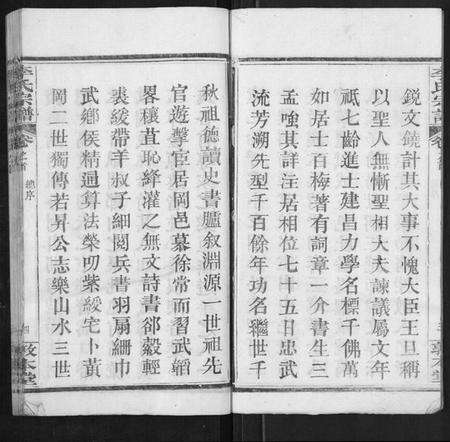 鋭文鐃計其大事不愧大臣王旦稱
以聖人無慚聖相大夫諫議屬文年
祇七齡進士建昌力學名標千佛萬
如居士百梅著有詞章一介書生三
孟嗤其詳注居相位七十五日忠武
流芳溯先型千百餘年功名繼世千
秋祖德讀史書臚叙淵源一世祖先
官遊擊臣居岡邑慕徐常而習武韜
畧穰苴恥絳灌之無文詩書郤縠輕
裘緩帶羊叔子細閱兵書羽扇綸巾
武鄉侯精通算法榮叨紫綬宅卜黃
岡二世獨傳若昇公志樂山水三世
李氏宗譜
卷首
總序
敦本堂